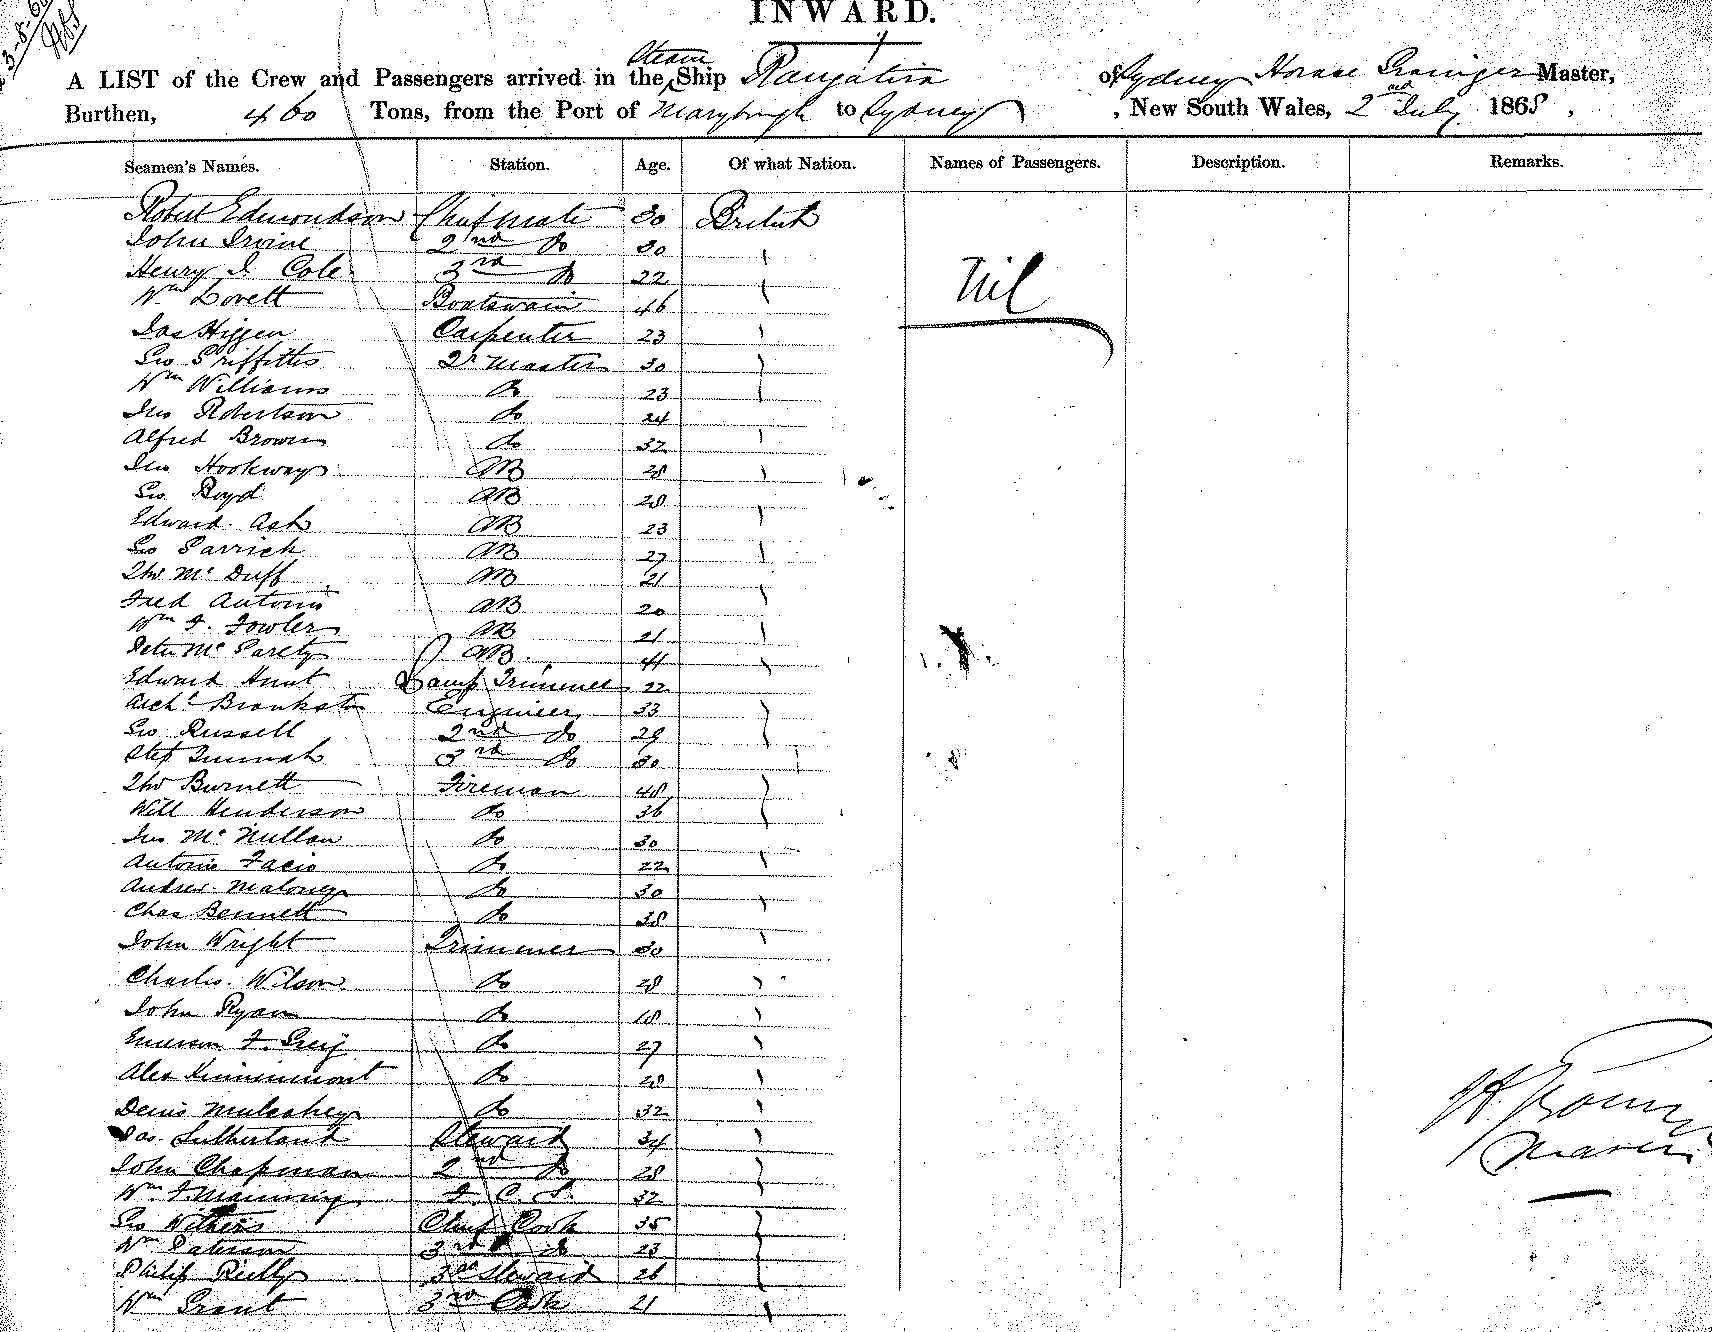 3-8-6
INWARD.
Steam
A LIST of the Crew and Passengers arrived in the Ship Rangatira of Sydney Horace Master,
Burthen, 460 Tons, from the Port of Maryborough to Sydney, New South Wales, 2nd July 1868,
Seamen's Names. Station. Age. Of what Nation. Names of Passengers. Description. Remarks.
Robert Edmondson Chief Mate 30 British
John Irvine 2nd do 30 "
Henry I. Cole 3rd do 22 " Nil
Wm Lovett Boatswain 46 "
Jas Higgen Carpenter 23 "
Geo Griffiths Qr Master 30 "
Wm Williams do 23 "
Jno Robertson do 24
Alfred Brown do 32 "
Jno Hookway AB 28 "
Geo. Boyd AB 28
Edward Ash AB 23 "
Geo Garrick AB 27 "
Thos McDuff AB 21
Fred Antonio AB 20 "
Wm F. Fowler AB 21 "
Peter McGarety AB 41 "
Edward Hunt Lamp Trimmer 22
Archd Brankston Engineer 33 "
Geo Russell 2nd do 29 "
Step 3rd do 30 "
Thos Burnett Fireman 48 "
Will Henderson do 36 "
Jno McMillan do 30
Antonio Facio do 22 "
Andrew Maloney do 30 "
Chas Bennett do 38
John Wright Trimmer 30 "
Charles Wilson do 28 "
John Ryan do 18 "
Emerson F. Greig do 27 "
Alex Kinninmont do 28 "
Denis Mulcahey do 32 "
Jas. Sutherland Steward 34 "
John Chapman 2nd do 28 "
Wm F. Manning F. C. S. 32
Geo Withers Chief Cook 35 "
Wm Paterson 3rd do 23 "
Philip Reilly 3rd Steward 26 "
Wm Grant 3rd Cook 21 "
H.
Master